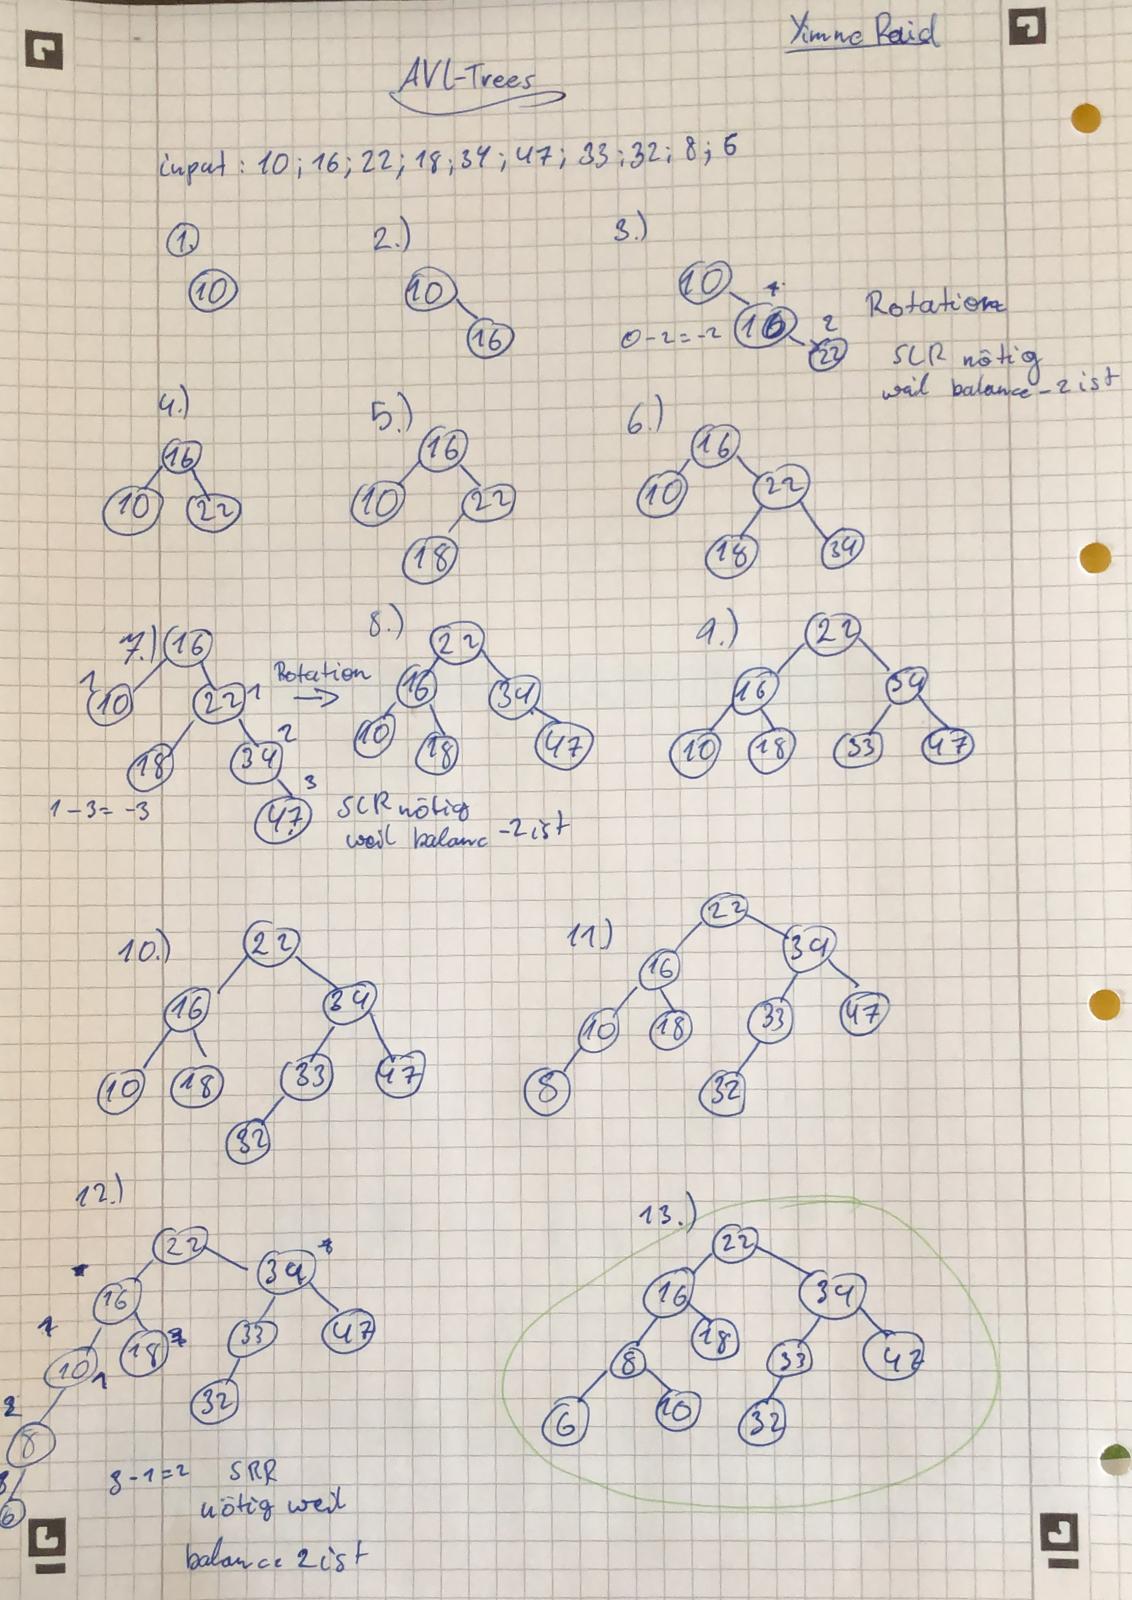 Yimne Raid
AVL-Trees
input : 10 ; 16 ; 22 ; 18 ; 34 ; 47 ; 33 ; 32 ; 8 ; 6
1.
2.)
3.)
10
10
16
10
1
16
2
22
0-2=-2
Rotation
SLR nötig
weil balance -2 ist
4.)
5.)
6.)
16
10 22
16
10 22
18
16
10 22
18 34
7.)
16
1
10
22 1
18
34 2
47 3
1-3=-3
Rotation
8.)
22
16 34
10 18 47
SLR nötig
weil balanc -2 ist
9.)
22
16 34
10 18 33 47
10.)
22
16 34
10 18 33 47
32
11.)
22
16 34
10 18 33 47
8 32
12.)
22
16 34
10 18 33 47
8 32
6
3-1=2 SRR
nötig weil
balance 2 ist
13.)
22
16 34
8 18 33 47
6 10 32